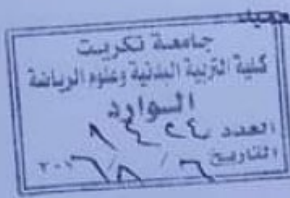 جامعة تكريت
كلية التربية البدنية وعلوم الرياضة
الـوارد
العدد
التاريخ ٦ / ٨ / ٢٠١٦